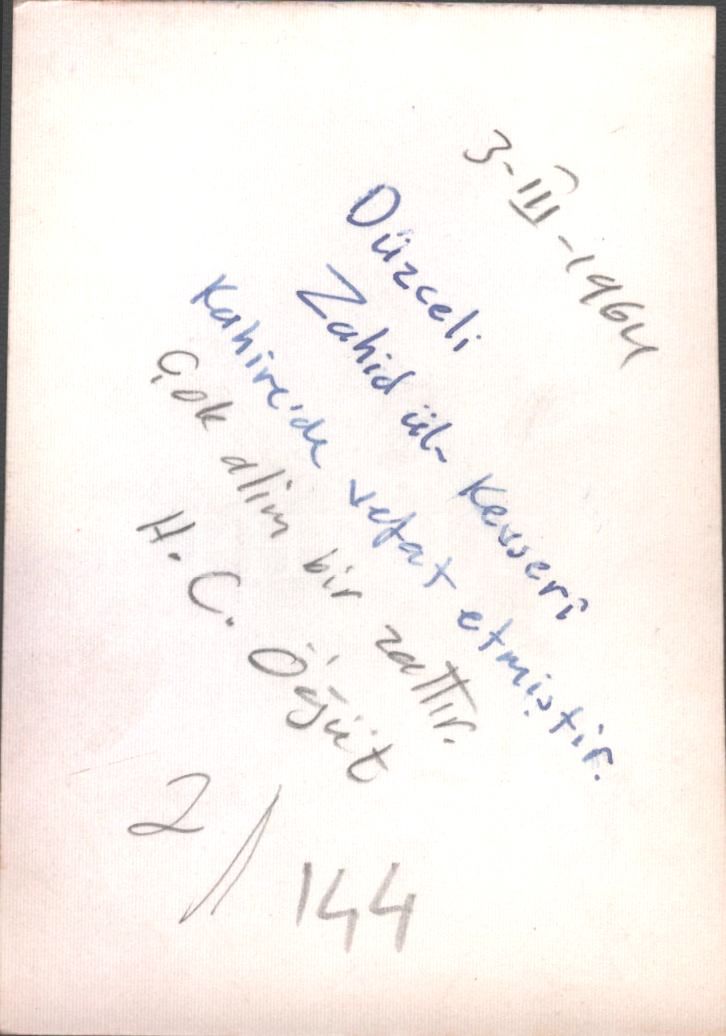 3-III-1964
Düzceli
Zahid ül- Kevseri
Kahire'de vefat etmiştir.
Çok alim bir zattır.
H. C. Öğüt
2/144